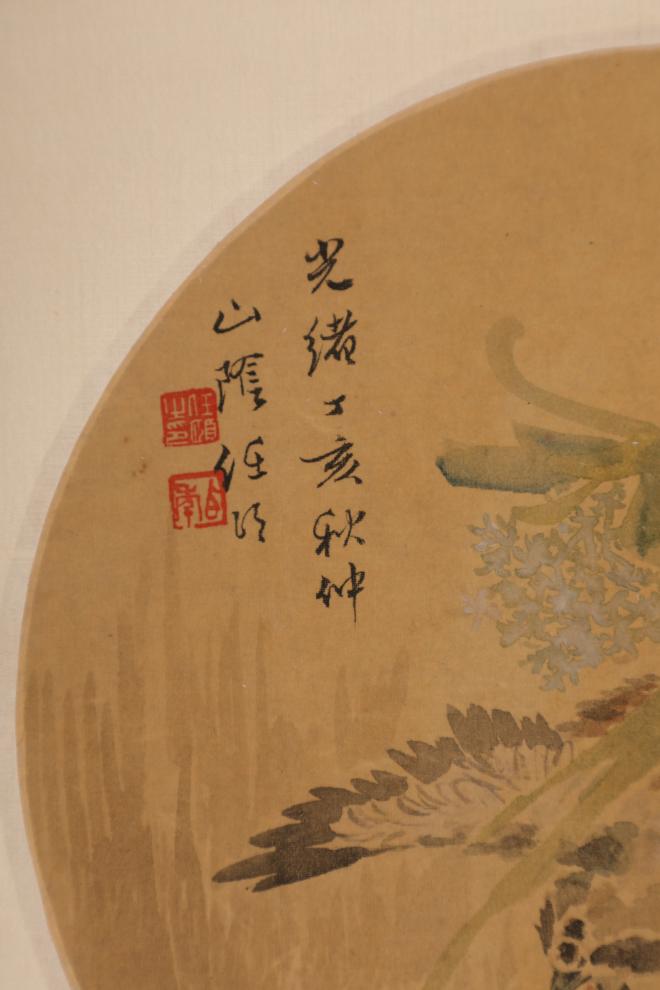 光緒丁亥秋仲
山陰任頤
任頤之印
伯年